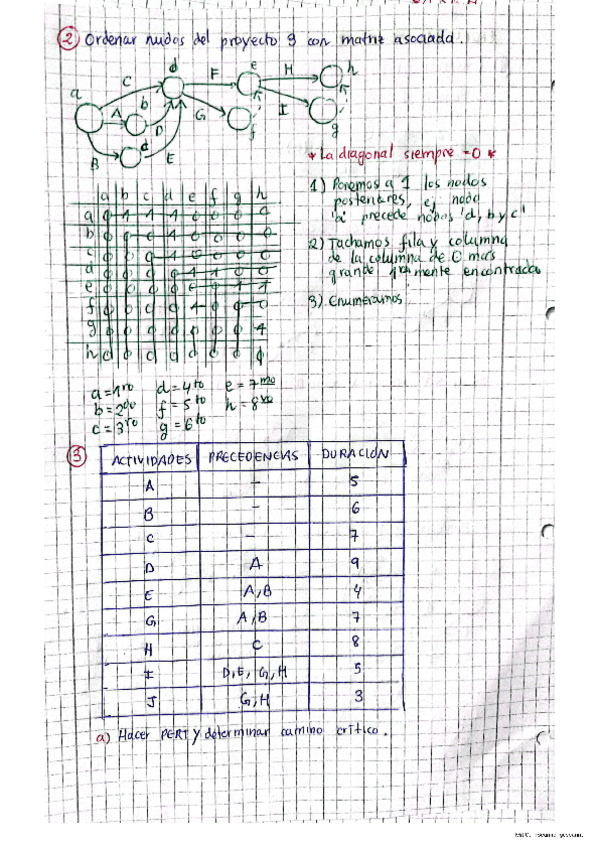 ② Ordenar nudos del proyecto g con matriz asociada.
a C d F e H h
A b D G I
B d E f g
* La diagonal siempre = 0 *
1) Ponemos a 1 los nodos
posteriores, ej nodo
'a' precede nodos 'd, b y c'
2) Tachamos fila y columna
de la columna de 0 mas
grande 1ra mente encontrada
3) Enumeramos
a b c d e f g h
a 0 1 1 1 0 0 0
b 0 0 0 1 0 0 0 0
c 0 0 0 1 0 0 0 0
d 0 0 0 0 1 1 0 0
e 0 0 0 0 0 0 1 1
f 0 0 0 0 1 0 0 0
g 0 0 0 0 0 0 0 1
h 0 0 0 0 0 0 0 0
a = 1ro d = 4to e = 7mo
b = 2do f = 5to h = 8vo
c = 3ro g = 6to
③ ACTIVIDADES PRECEDENCIAS DURACIÓN
A - 5
B - 6
C - 7
D A 9
E A,B 4
G A,B 7
H C 8
I D,E, G,H 5
J G,H 3
a) Hacer PERT y determinar camino crítico.